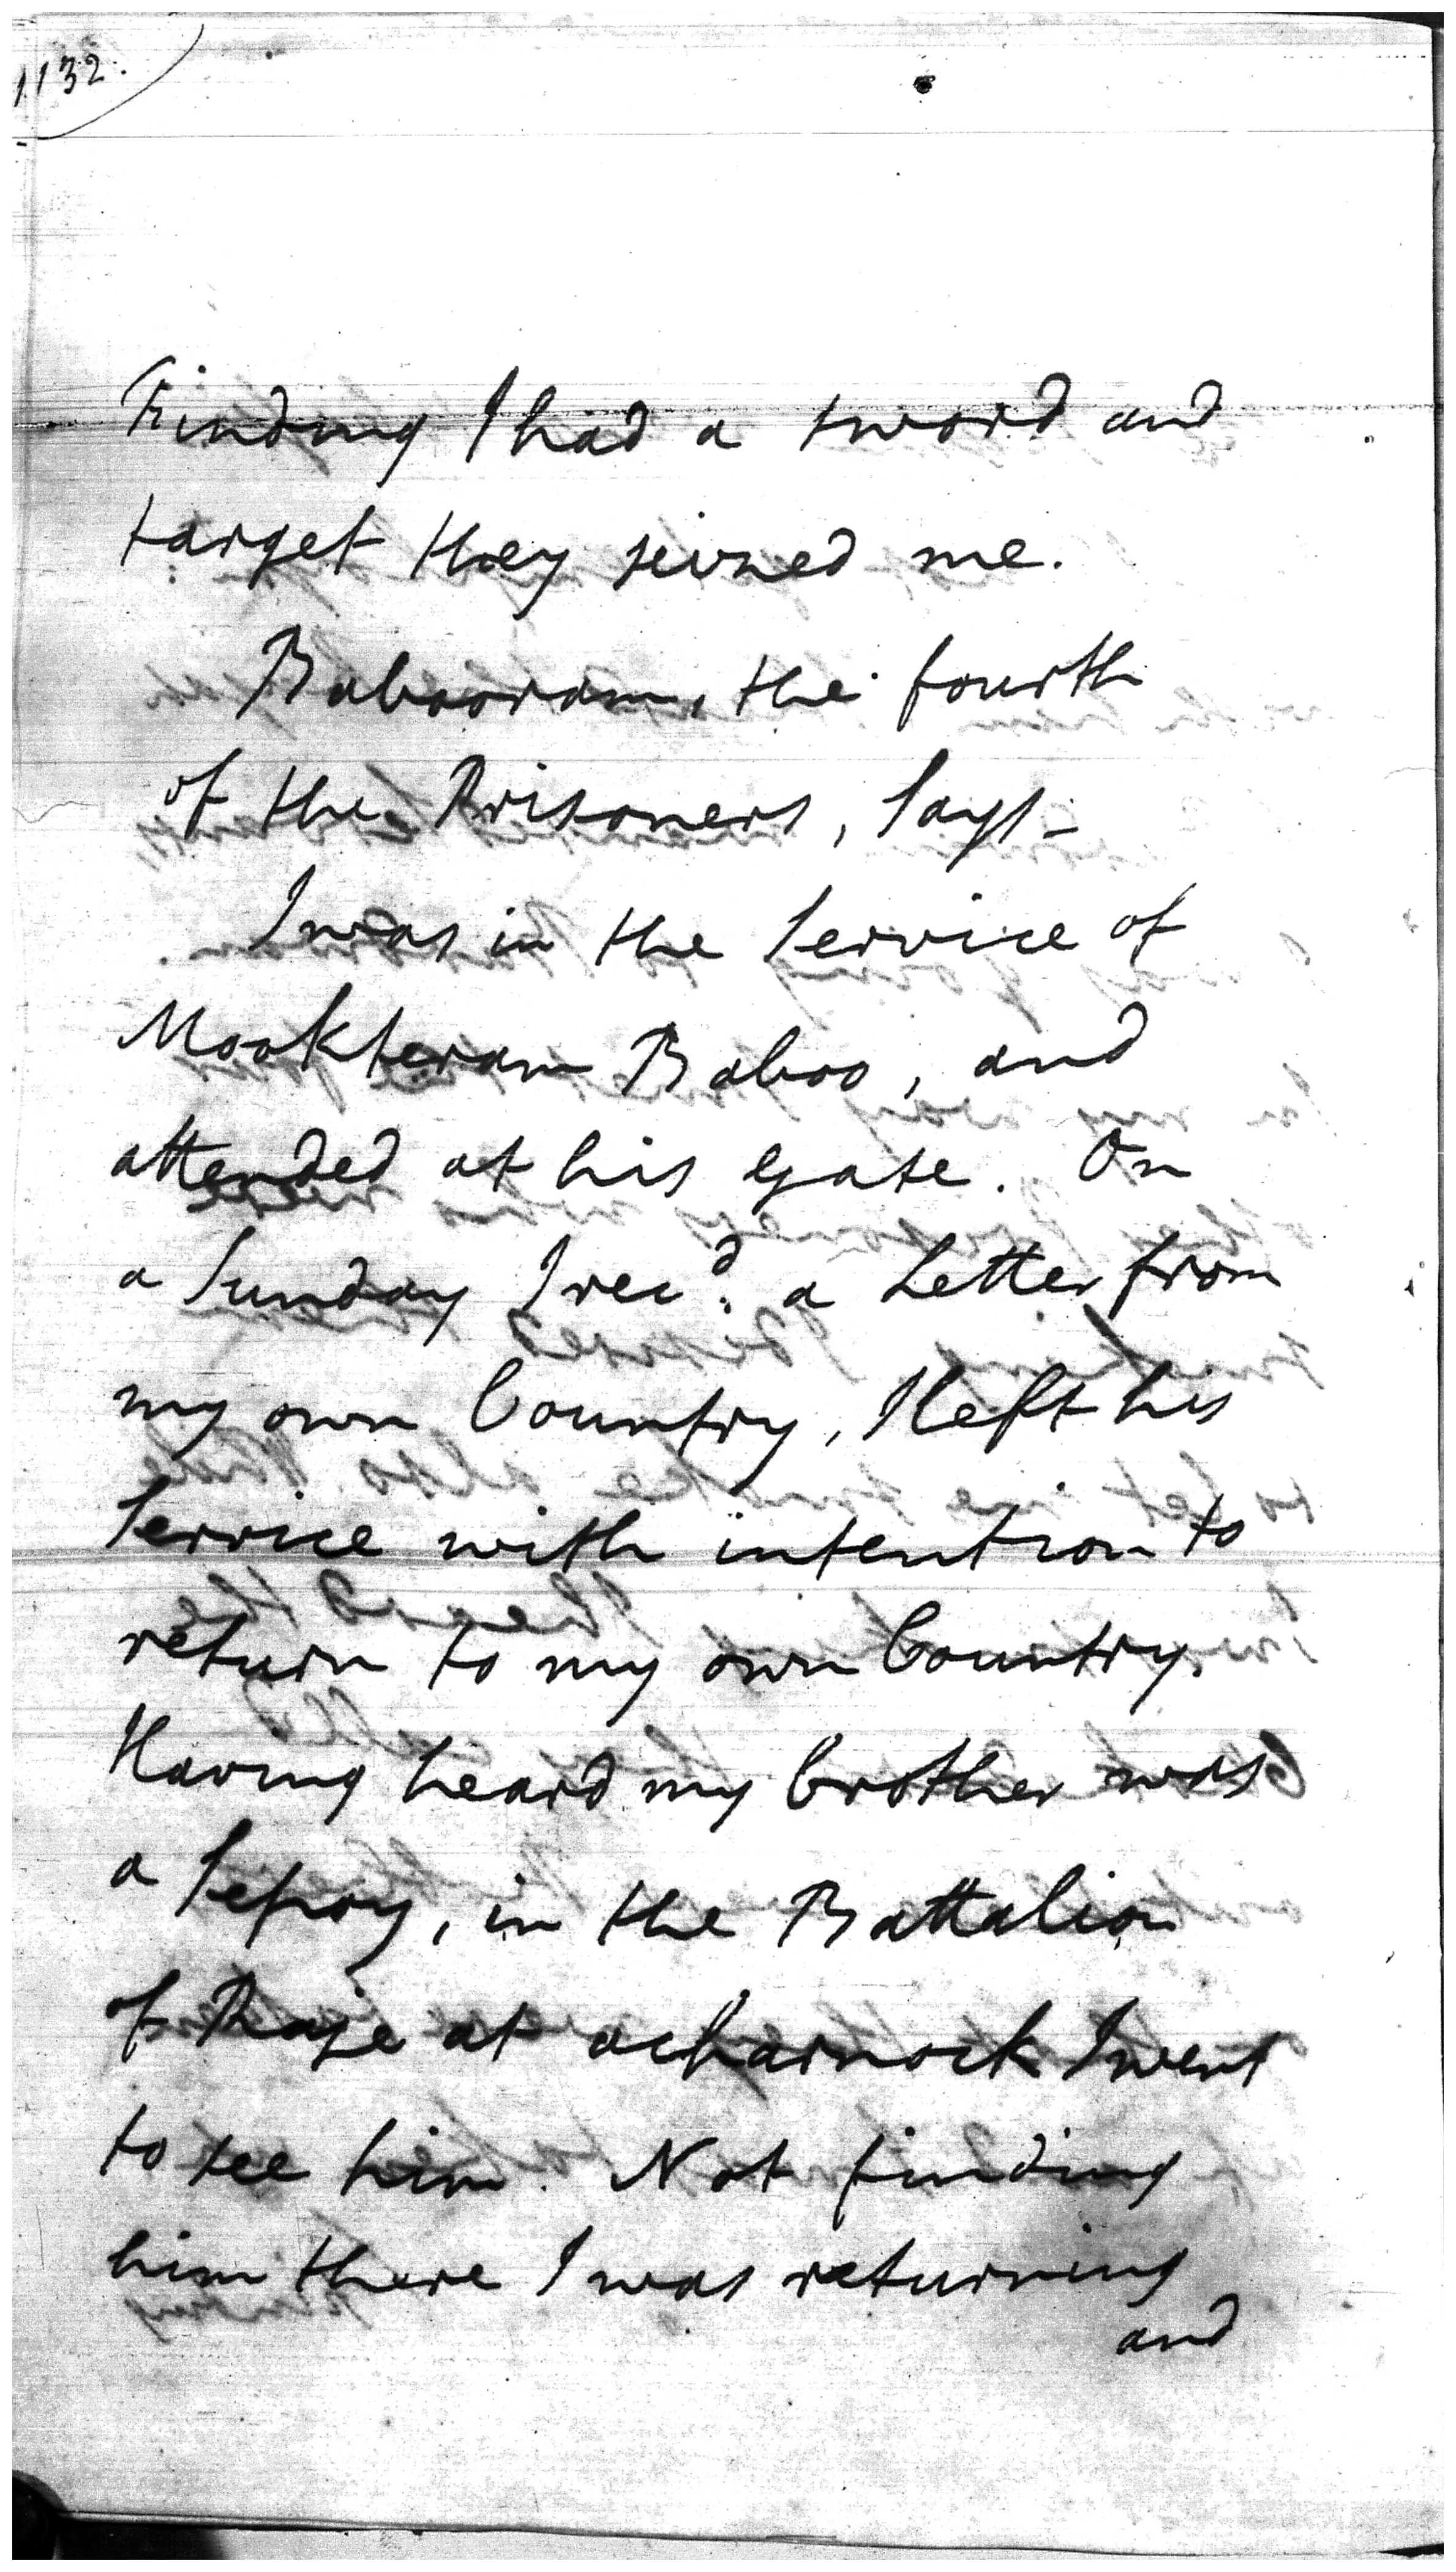 1132.
Finding I had a sword and
target they seized me.
Babooram, the fourth
of the Prisoners, Says -
I was in the Service of
Mookteram Baboo, and
attended at his Gate. On
a Sunday I recd. a Letter from
my own Country, I left his
Service with intention to
return to my own Country.
Having heard my Brother was
a Sepoy, in the Battalion
of Raje at acharnock I went
to see him. Not finding
him there I was returning
and